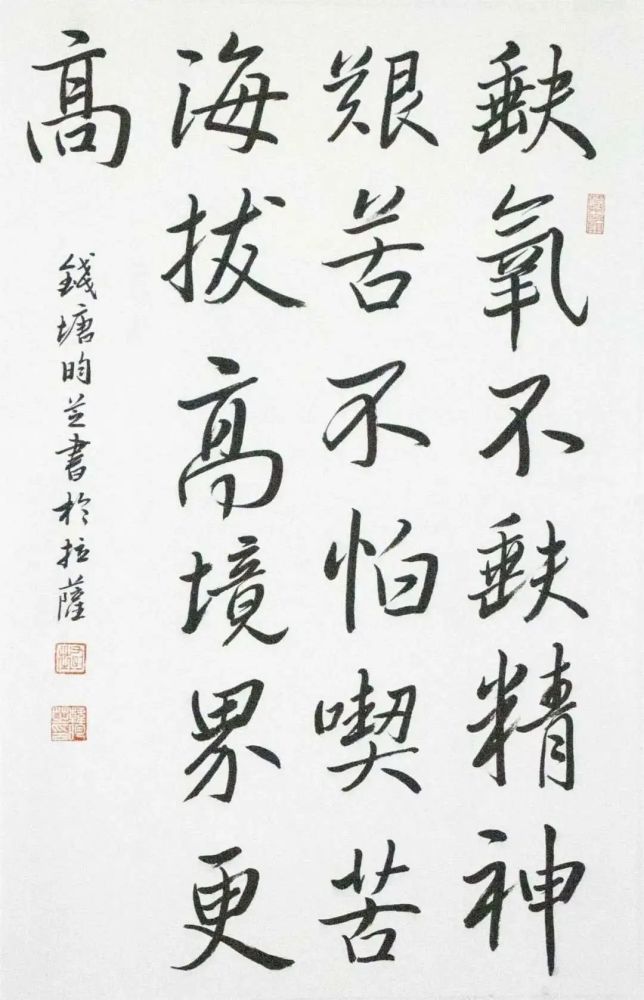 缺氧不缺精神
艱苦不怕喫苦
海拔高境界更
高
錢塘昀芝書於拉薩